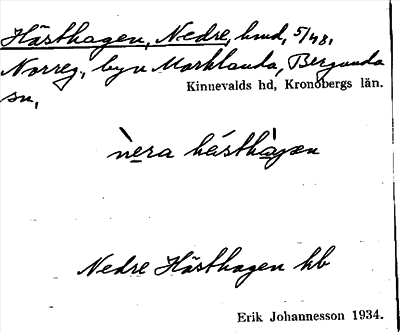 Hästhagen, Nedre, hmd, 5/48,
Norreg, byn Marklanda, Bergunda
Kinnevalds hd, Kronobergs län.
sn,
nera hästhagen
Nedre Hästhagen hb
Erik Johannesson 1934.